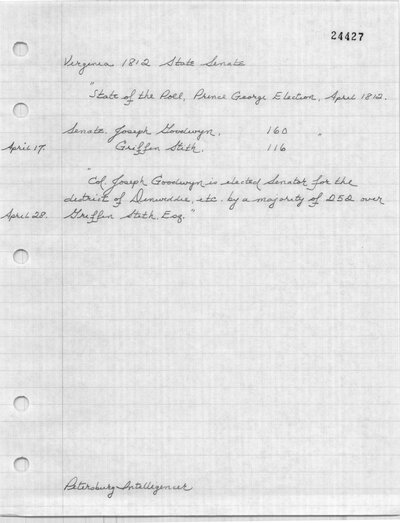 24427
Virginia 1812 State Senate
"State of the Poll, Prince George Election, April 1812.
Senate. Joseph Goodwyn, 160 "
April 17. Griffin Stith, 116
"Col. Joseph Goodwyn is elected Senator for the
district of Dinwiddie, etc. by a majority of 252 over
April 28. Griffin Stith, Esq."
Petersburg Intelligencer